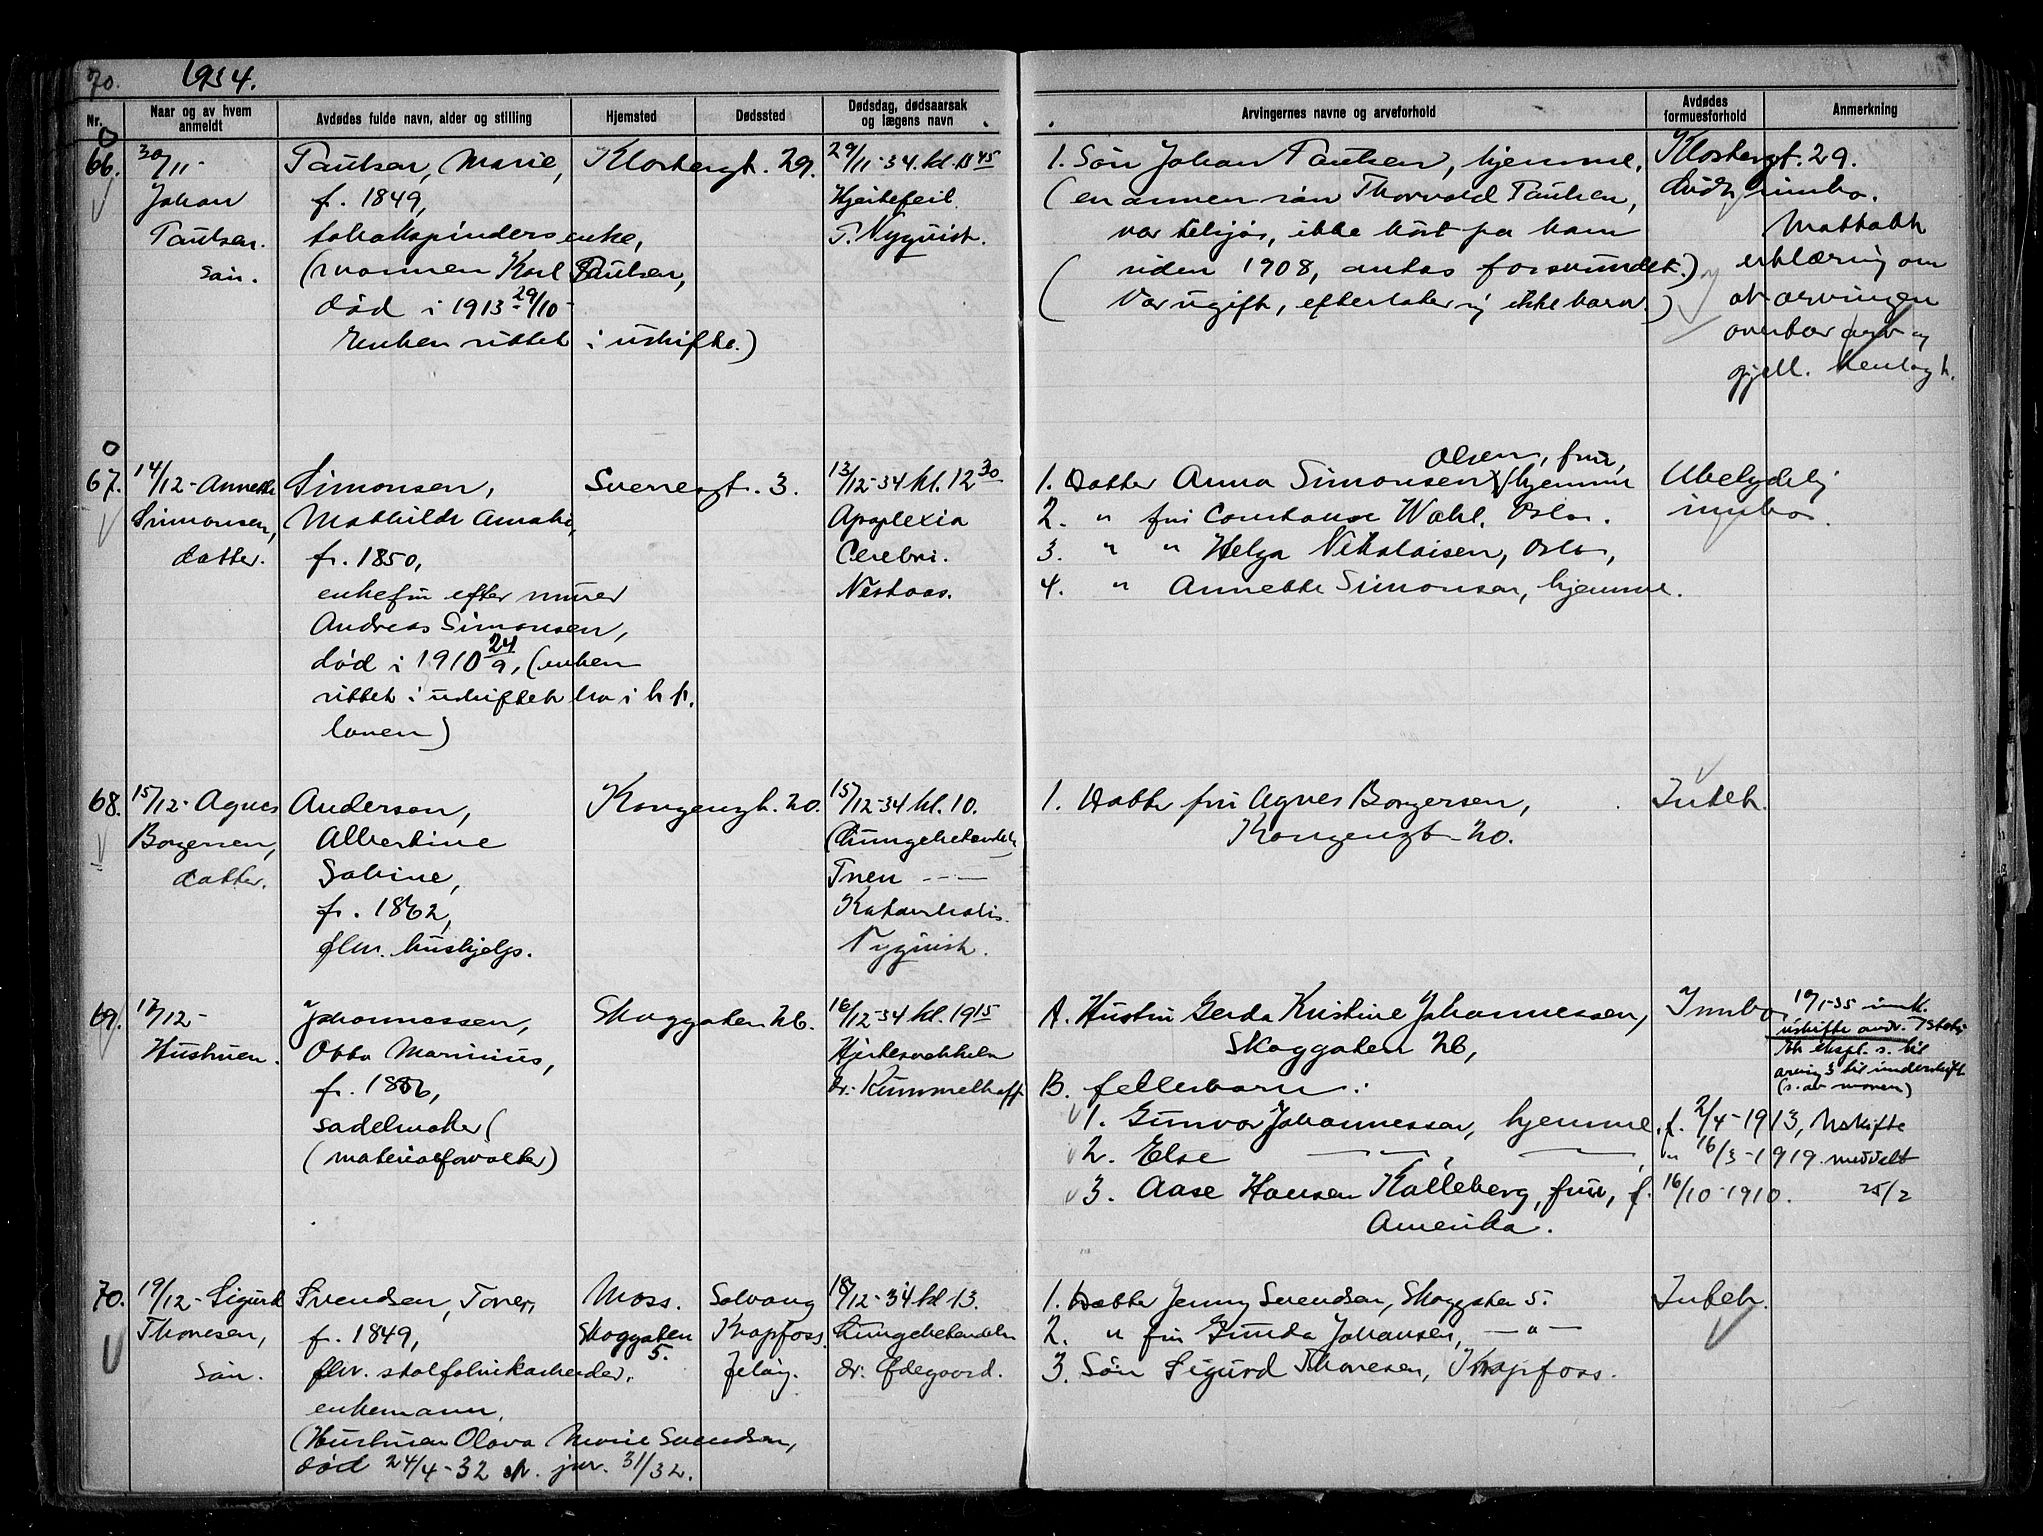 70.
1934.
Nr.
Naar og av hvem anmeldt
Avdødes fulde navn, alder og stilling
Hjemsted
Dødssted
Dødsdag, dødsaarsak og lægens navn
Arvingernes navne og arveforhold
Avdødes formuesforhold
Anmerkning
66.
30/11-
Johan
Paulsen.
sön.
Paulsen, Marie,
f. 1849,
tobakspinders enke,
(mannen Karl Paulsen,
død i 1913 29/10-
Enken sittet i uskifte.)
Klostergt. 29.
29/11-34 kl. 13 45
Hjertefeil.
P. Nyquist.
1. Sön Johan Paulsen, hjemme,
(en annen sön Thorvald Paulsen,
var tilsjøs, ikke hört fra ham
siden 1908, antas forsvundet.)
(Var ugift, efterlater sig ikke barn.)
Klostergt. 29.
innbo.
Mottatt
erklæring om
at arvingen
overtar arv og
gjeld. Henlagt.
67.
14/12- Annette
Simonsen,
datter.
Simonsen,
Mathilde Amalie,
f. 1850,
enkefru efter murer
Andreas Simonsen,
död i 1910 24/9, (enken
sittet i uskiftet bo i h. t.
loven)
Sverresgt. 3.
13/12-34 kl. 12 30
Apoplexia
Cerebri.
Nestaas.
Olsen, fru,
1. Datter Anna Simonsen, hjemme
2. " fru Constanse Wahl, Oslo.
3. " " Helga Nikolaisen, Oslo,
4. " Annette Simonsen, hjemme.
Ubetydelig
innbo.
68.
15/12- Agnes
Borgersen,
datter.
Andersen,
Albertine
Sabine,
f. 1862,
fhv. hushjelp.
Kongensgt. 20.
15/12-34 kl. 10.
(Lungebetendelse)
Pneu - - -
Katarrhalis.
Nyquist.
1. Datter fru Agnes Borgersen,
Kongensgt. 20.
Intet.
69.
17/12-
Hustruen.
Johannessen,
Otto Marinius,
f. 1886,
sadelmaker (
(materialforvalter)
Skoggaten 26.
16/12-34 kl. 19 15
Hjertesvekkelse
dr. Kummelhoff
A. Hustru Gerda Kristine Johannessen,
Skoggaten 26,
B. fellesbarn:
1. Gunvor Johannessen, hjemme, f. 2/4-1913,
2. Else — " — , — " — , " 16/3-1919.
3. Aase Hansen Kalleberg, fru, f. 16/10-1910.
Amerika.
Innbo.
uskifte
s. til
arving 3 til underskift
(s. av moren)
Uskifte
meddelt
25/2
70.
19/12- Sigurd
Thoresen,
sön.
Svendsen, Tores,
f. 1849,
fhv. stolfabrikarbeider,
enkemann.
(Hustruen Olava Marie Svendsen,
död 24/4-32 sk. jnr. 31/32.
Moss.
Skoggaten
5.
Solvang
Krapfoss
Jelöy.
18/12-34 kl 13.
Lungebetendelse
dr. Ødegaard.
1. Datter Jenny Svendsen, Skoggaten 5.
2. " fru Gunda Johansen, — " —
3. Sön Sigurd Thoresen, Krapfoss.
Intet.